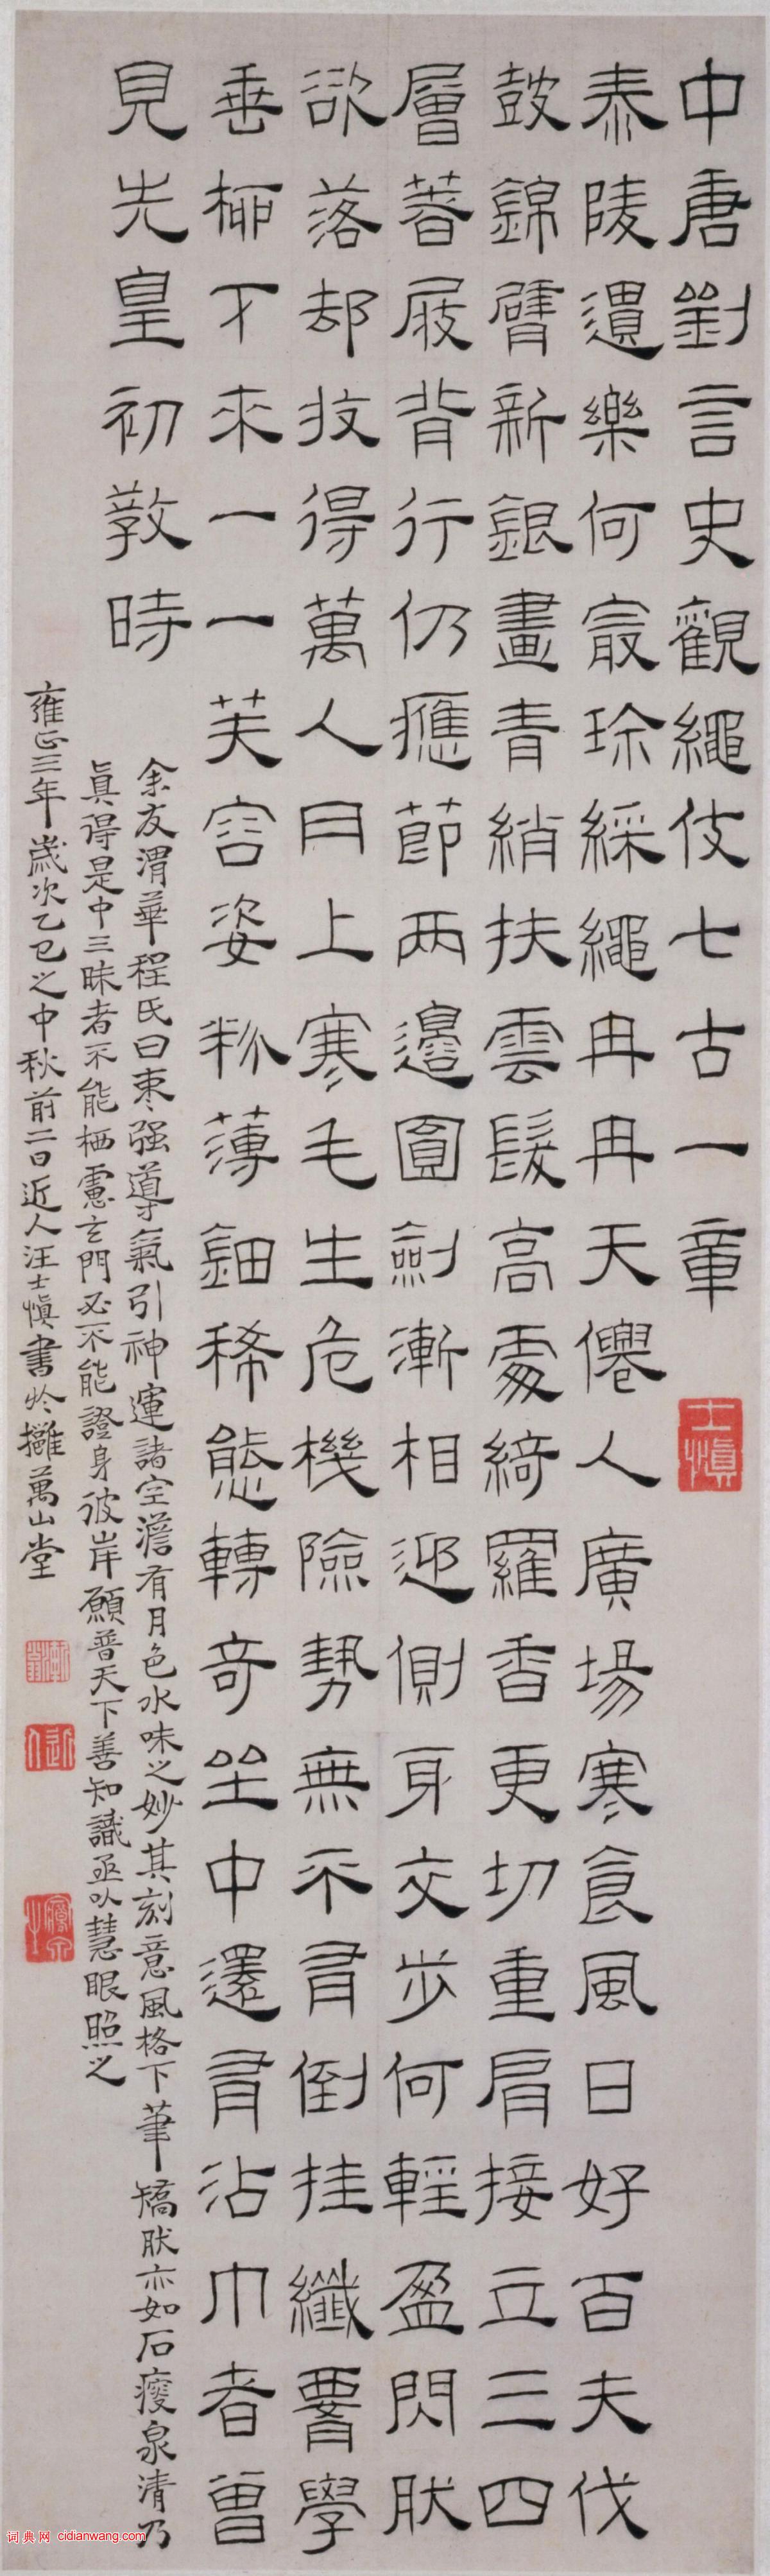 中唐劉言史觀繩伎七古一章
士慎
泰陵遺樂何最珍綵繩冉冉天僊人廣場寒食風日好百夫伐
鼓錦臂新銀畫青綃抹雲髮高處綺羅香更切重肩接立三四
層著屐背行仍應節兩邊圓劍漸相迎側身交步何輕盈閃肰
欲落却收得萬人肉上寒毛生危機險勢無不有倒挂纖腰學
垂柳下來一一芙容姿粉薄鈿稀態轉奇坐中還有沾巾者曾
見先皇初敎時
余友渭華程氏曰棗强導氣引神運諸空澹有月色水味之妙其刻意風格下筆矯肰亦如石瘦泉清乃
眞得是中三昧者不能栖慮玄門必不能證身彼岸願普天下善知識亟以慧眼照之
雍正三年歲次乙巳之中秋前二日近人汪士慎書於攡萬山堂
近人
词典网 cidianwang.com